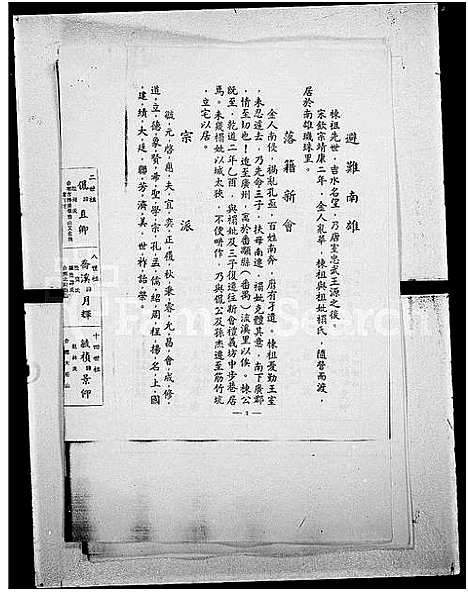 避難南雄
棟祖先世，吉水名望，乃唐室忠武王源之後。
宋欽宗靖康二年，金人亂華，棟祖與祖妣禤氏，隨晉南渡，
居於南雄璣珠里。
落籍新會
金人南侵，禍亂孔亟，百姓南奔，靡有孑遺。棟祖憂勤王室
，未忍遽去，乃先命三子，扶母南遷，禤妣克體其意，南下廣郡
，情至切也！迨至廣州，寓於番顒縣（番禺）流溪里以俟。棟公
既至，乾道二年乙酉，與禤妣及三子復遷往新會禮義坊中步巷居
焉。未幾禤妣以城太狹，不便畊作，乃與佩公及孫杰遷至筋竹坑
，立宅以居。
宗派
啟，元，啓，圃，夫，宜，奕，正，復，秋，秉，睿，允，昌，會，成，修，
道，立，德，象，賢，希，聖，學，宗，孔，孟，儒，紹，周，程，揚，名，上，國
，建，績，大，廷，聯，芳，濟，美，世，祚，詒，榮。
— 1 —
二世祖
直卿
八世祖
喬溪
月輝
十四世祖
毓楨
景卿